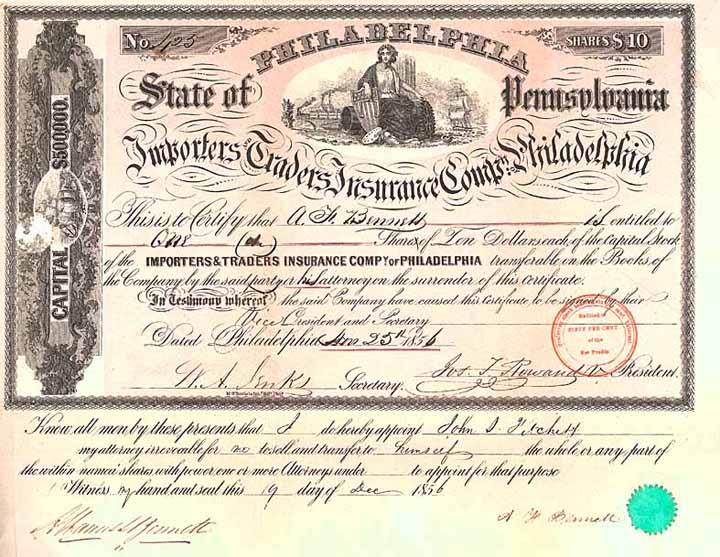 No. 425
PHILADELPHIA
SHARES $10
State of Pennsylvania
Importers and Traders Insurance Compy. of Philadelphia
CAPITAL $500,000.
This is to Certify that A. H. Bennett is entitled to
One (1) Share of Ten Dollars each, of the Capital Stock
of the IMPORTERS & TRADERS INSURANCE COMPY OF PHILADELPHIA transferable on the Books of
the Company by the said party or his attorney on the surrender of this Certificate.
In Testimony whereof the said Company have caused this Certificate to be signed by their
Vice President and Secretary
Dated Philadelphia 25th 1856
Entitled to
FIFTY PER CENT
of the
Net Profits
W. A. Secretary. Jos. T. Rowand V. President.
Know all men by these presents that I do hereby appoint John S.
my attorney irrevocable for me to sell and transfer to himself the whole or any part
of the within named shares with power one or more Attorneys under to appoint for that purpose
Witness my hand and seal this 19 day of Dec 1856
Bennett
A H Bennett